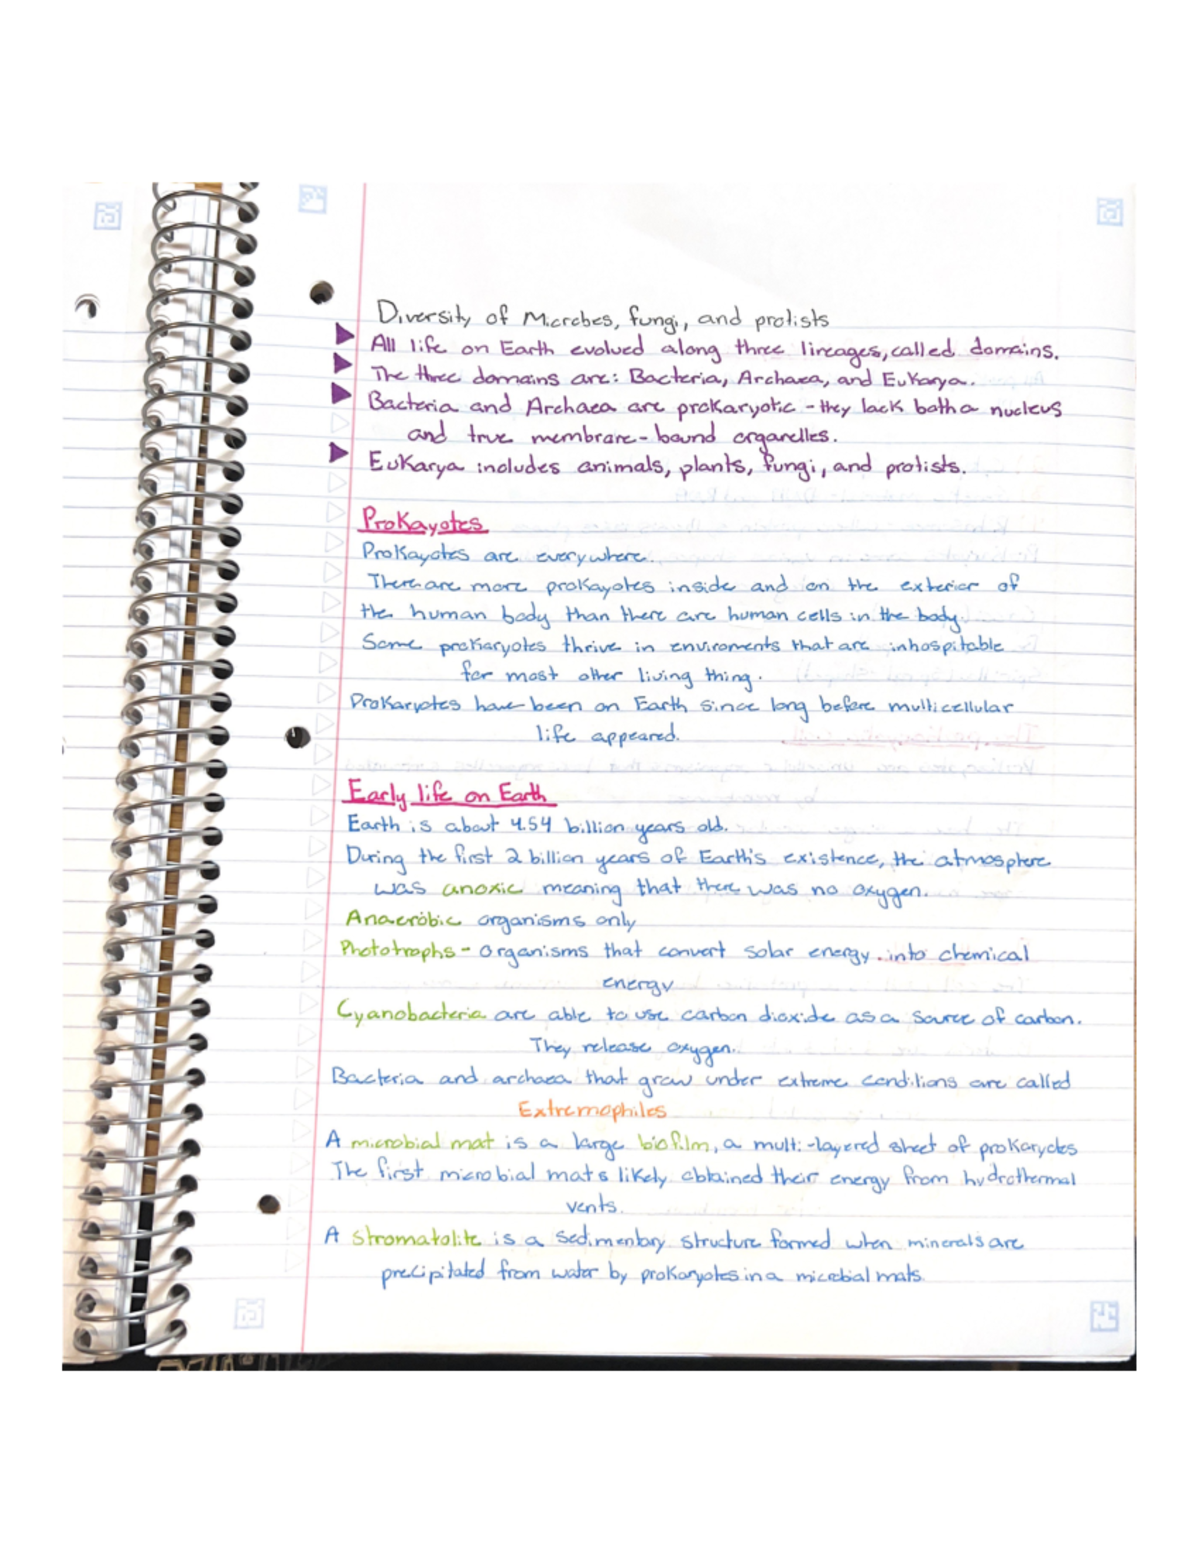 Diversity of Microbes, fungi, and protists
All life on Earth evolved along three lineages, called domains.
The three domains are: Bacteria, Archaea, and Eukarya.
Bacteria and Archaea are prokaryotic - they lack both a nucleus
and true membrane-bound organelles.
Eukarya includes animals, plants, fungi, and protists.
Prokayotes
Prokayotes are everywhere.
There are more prokayotes inside and on the exterior of
the human body than there are human cells in the body.
Some prokaryotes thrive in enviroments that are inhospitable
for most other living thing.
Prokaryotes have been on Earth since long before multicellular
life appeared.
Early life on Earth
Earth is about 4.54 billion years old.
During the first 2 billion years of Earth's existence, the atmosphere
was anoxic meaning that there was no oxygen.
Anaerobic organisms only
Phototrophs - organisms that convert solar energy into chemical
energy
Cyanobacteria are able to use carbon dioxide as a source of carbon.
They release oxygen.
Bacteria and archaea that grow under extreme conditions are called
Extremophiles
A microbial mat is a large biofilm, a multi-layered sheet of prokaryotes
The first microbial mats likely obtained their energy from hydrothermal
vents.
A stromatolite is a sedimentary structure formed when minerals are
precipitated from water by prokaryotes in a microbial mats.